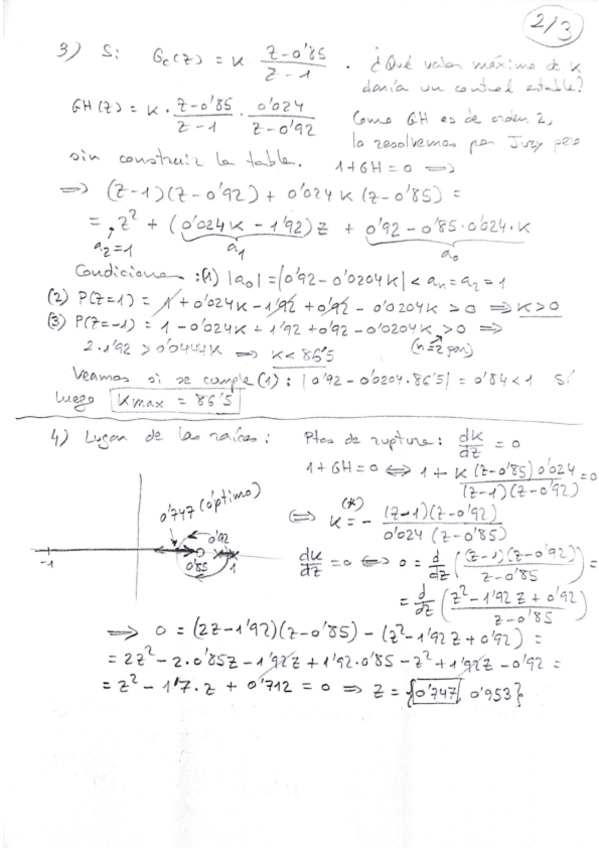 2/3
3) Si Gc(z) = K · (z-0'85)/(z-1) . ¿Qué valor máximo de K
daría un control estable?
GH(z) = K · (z-0'85)/(z-1) · 0'024/(z-0'92) Como GH es de orden 2,
lo resolvemos por Jury pero
sin construir la tabla. 1+GH=0 ⟹
⟹ (z-1)(z-0'92) + 0'024K(z-0'85) =
= z² + (0'024K - 1'92)z + 0'92 - 0'85·0'024·K
a₂=1 a₁ a₀
Condiciones: (1) |a₀| = |0'92-0'0204K| < aₙ = a₂ = 1
(2) P(z=1) = 1 + 0'024K - 1'92 + 0'92 - 0'0204K > 0 ⟹ K>0
(3) P(z=-1) = 1 - 0'024K + 1'92 + 0'92 - 0'0204K > 0 ⟹
(n=2 par)
2·1'92 > 0'0444K ⟹ K < 86'5
Veamos si se cumple (1): |0'92 - 0'0204·86'5| = 0'84 < 1 Sí
luego Kmax = 86'5
4) Lugar de las raíces: Ptos de ruptura: dK/dz = 0
1+GH=0 ⟺ 1 + K (z-0'85)0'024/((z-1)(z-0'92)) = 0
0'747 (óptimo)
(*)
⟺ K = - (z-1)(z-0'92)/(0'024(z-0'85))
0'92
-1 0'85 1
dK/dz = 0 ⟺ 0 = d/dz ((z-1)(z-0'92)/(z-0'85)) =
= d/dz ((z²-1'92z+0'92)/(z-0'85))
⟹ 0 = (2z-1'92)(z-0'85) - (z²-1'92z+0'92) =
= 2z² - 2·0'85z - 1'92z + 1'92·0'85 - z² + 1'92z - 0'92 =
= z² - 1'7·z + 0'712 = 0 ⟹ z = {0'747, 0'953}